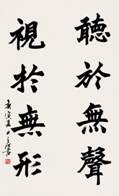 聽於無聲
視於無形